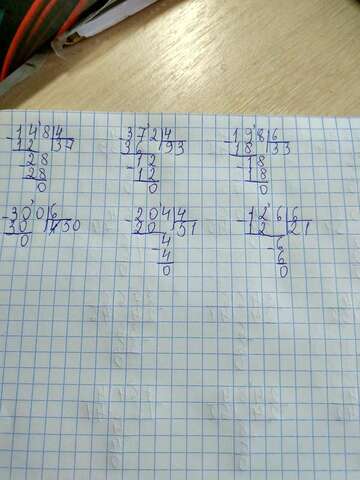 -148|4 -372|4 -198|6
12 |37 36 |93 18 |33
-28 -12 -18
28 12 18
0 0 0
-300|6 -204|4 -126|6
30 |50 20 |51 12 |21
0 -4 -6
4 6
0 0